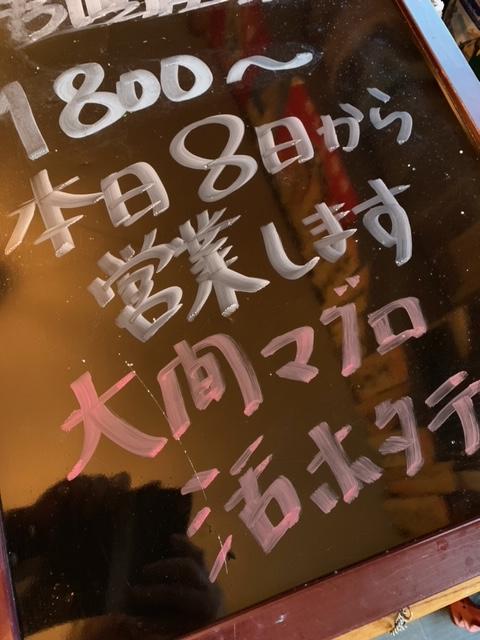 1800〜
本日8日から
営業します
大間マグロ
活ホタテ